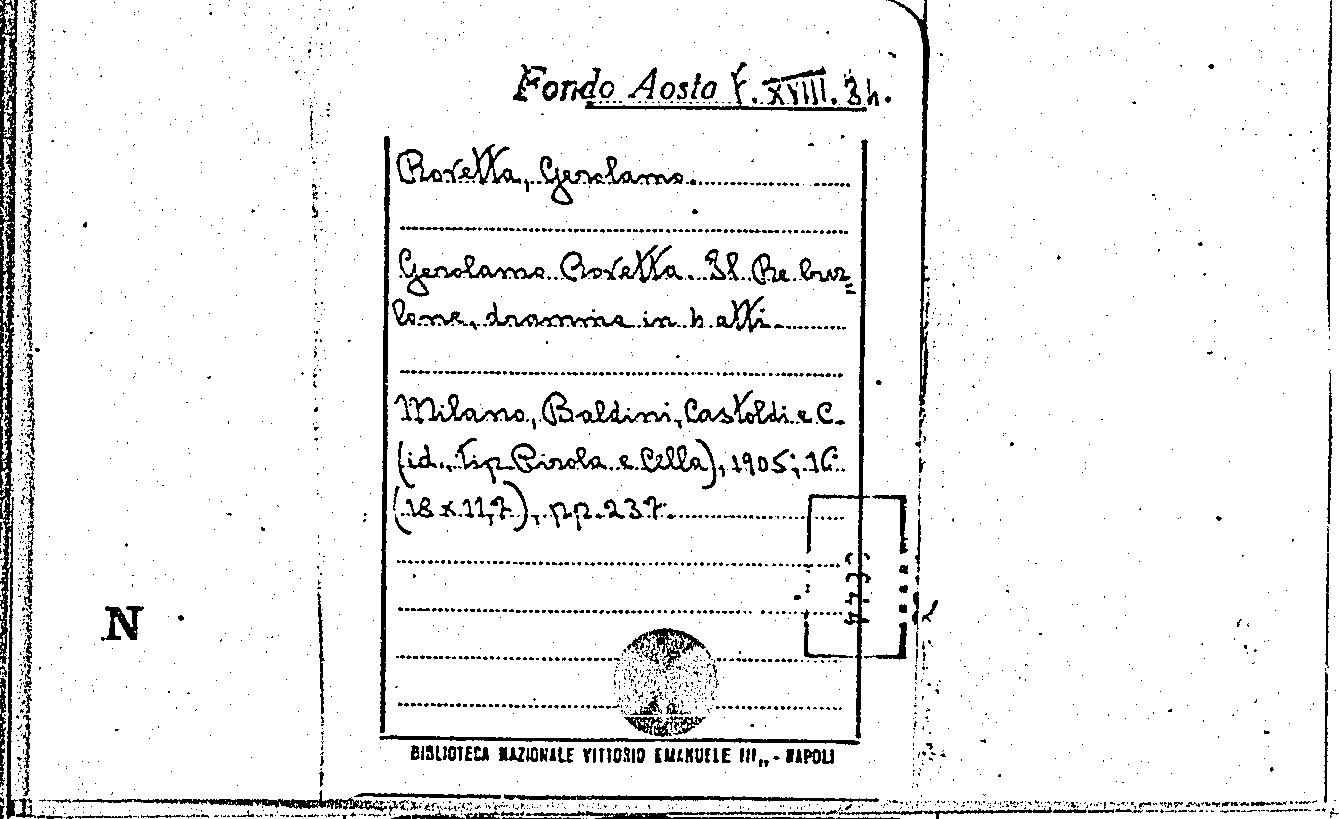 Fondo Aosta F. XVIII. 3h.
Rovetta, Gerolamo.
Gerolamo Rovetta. Il Re bur„
lone, dramma in h atti.
Milano, Baldini, Castoldi e C.
(id., Tip. Pirola e Cella), 1905; 16
(18 x 11,7), pp. 237.
N
BIBLIOTECA NAZIONALE VITTORIO EMANUELE III„ - NAPOLI